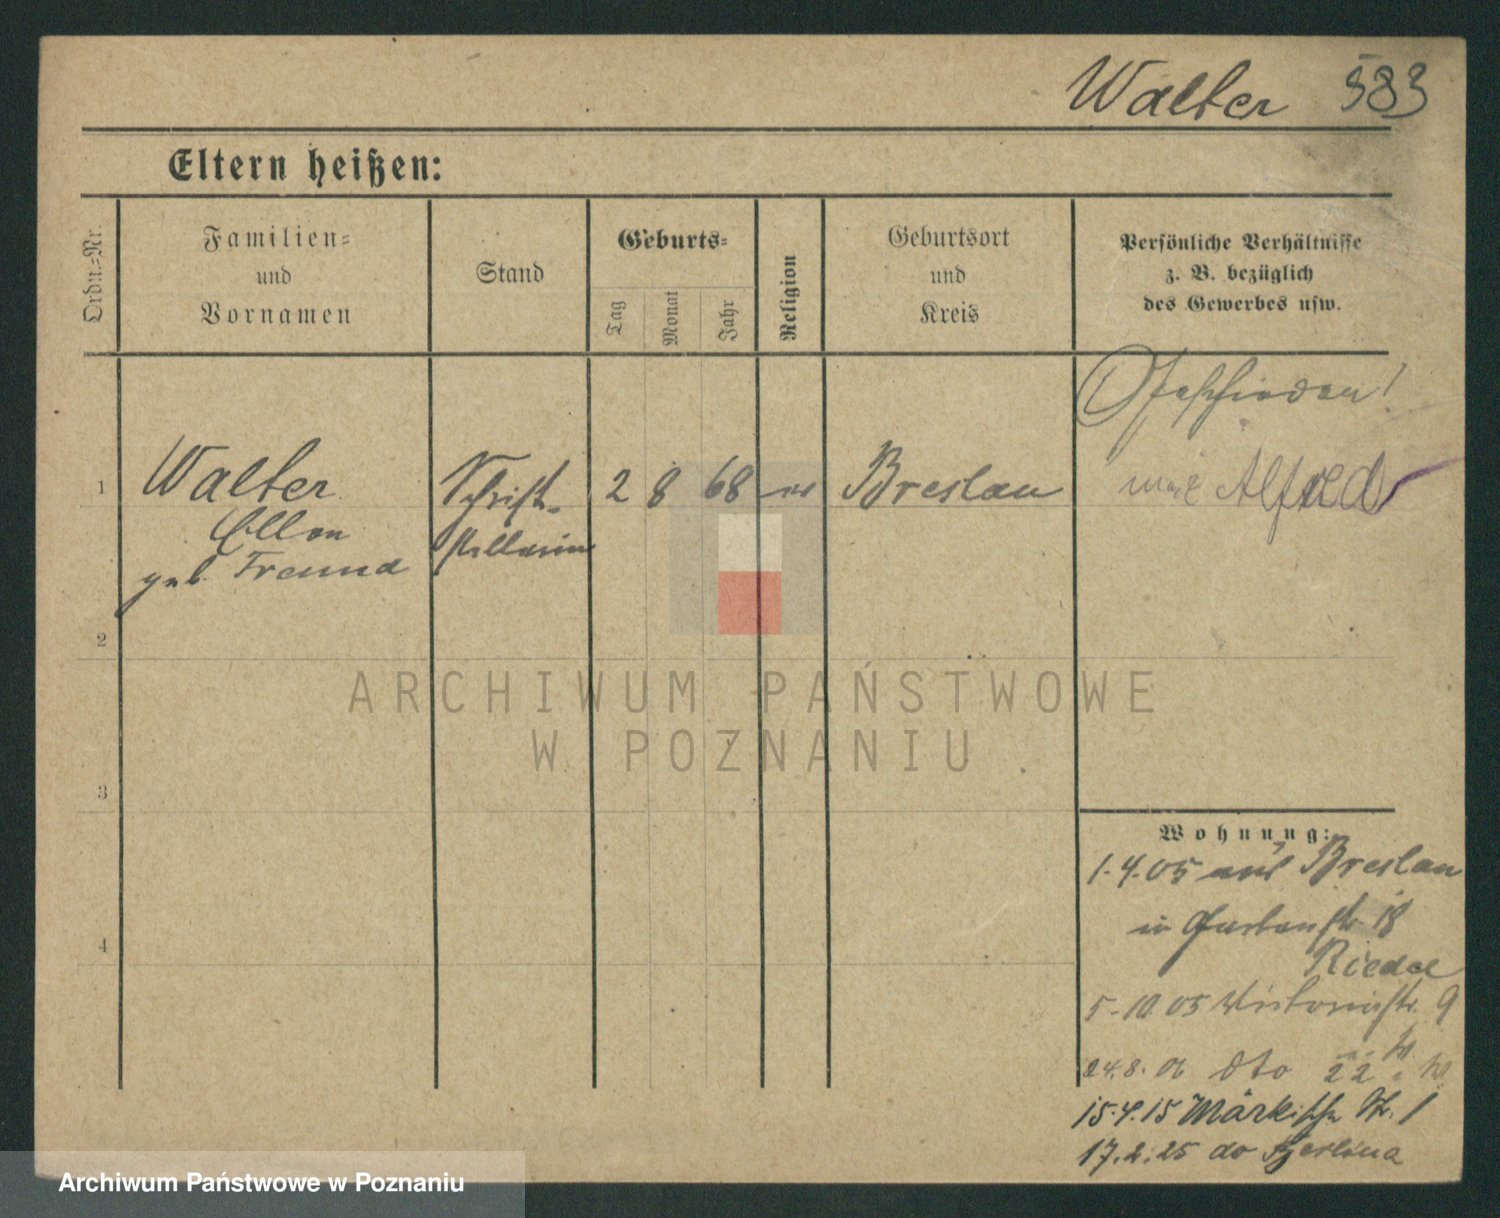 Walter 583
Eltern heißen:
Ordn.=Nr.
Familien=
und
Vornamen
Stand
Geburts=
Tag
Monat
Jahr
Religion
Geburtsort
und
Kreis
Persönliche Verhältnisse
z. B. bezüglich
des Gewerbes usw.
Geschieden!
1
Walter
Ellen
geb. Freund
Schrift-
stellerin
2 8 68
Breslau
Alfred
2
3
4
Wohnung:
1.4.05 aus Breslau
in Gartenstr 18
Riedel
5.10.05 Victoriastr. 9
24.8.06 dto 22
15.4.15 Märkische St. 1
17.2.25 do Berlina
ARCHIWUM PAŃSTWOWE
W POZNANIU
Archiwum Państwowe w Poznaniu